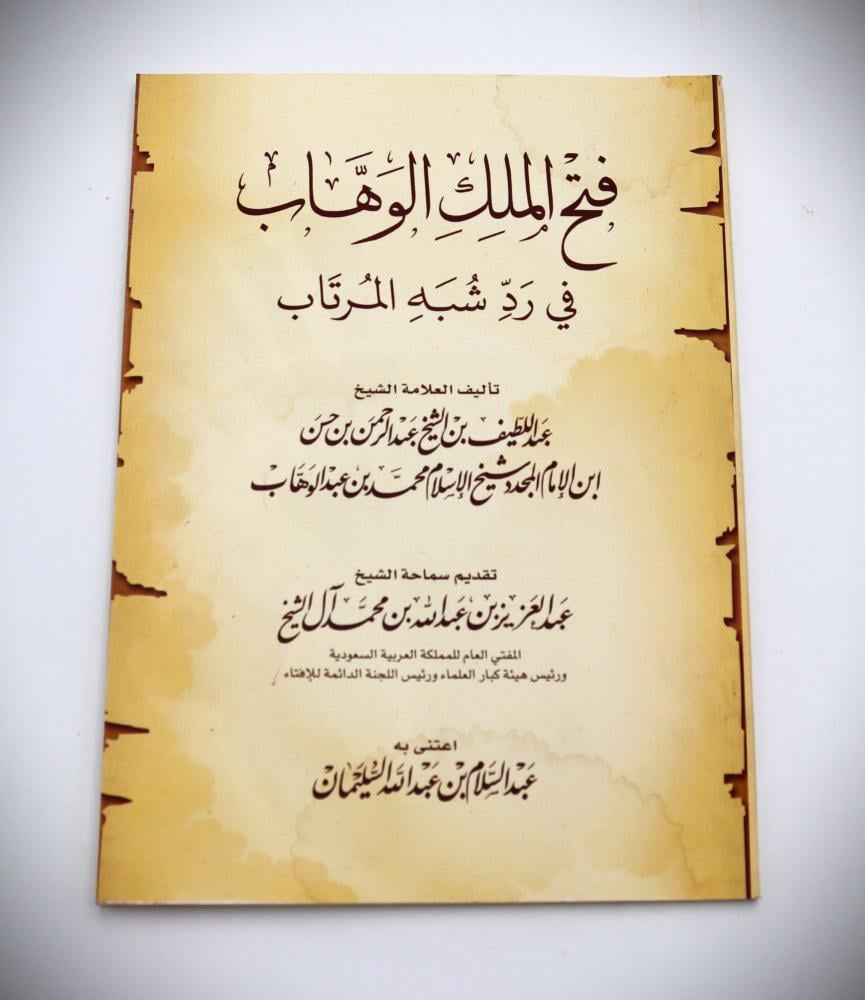 فتح الملك الوهاب
في رد شبه المرتاب
تأليف العلامة الشيخ
عبد اللطيف بن الشيخ عبد الرحمن بن حسن
ابن الإمام المجدد شيخ الإسلام محمد بن عبد الوهاب
تقديم سماحة الشيخ
عبد العزيز بن عبد الله بن محمد آل الشيخ
المفتي العام للمملكة العربية السعودية
ورئيس هيئة كبار العلماء ورئيس اللجنة الدائمة للإفتاء
اعتنى به
عبد السلام بن عبد الله السليمان